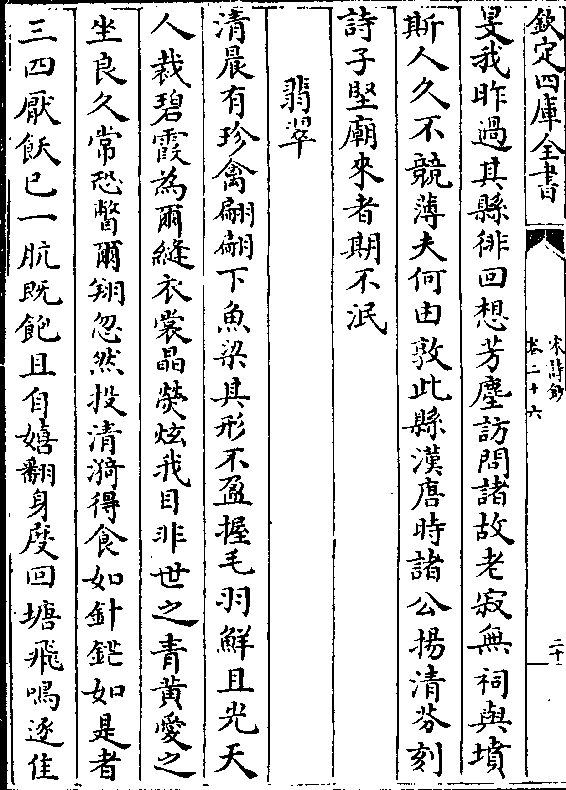 欽定四庫全書
宋詩鈔
卷二十六
二十
旻我昨過其縣徘回想芳塵訪問諸故老寂無祠與墳
斯人久不競薄夫何由敦此縣漢唐時諸公揚清芬刻
詩子堅廟來者期不泯
翡翠
清晨有珍禽翩翩下魚梁其形不盈握毛羽鮮且光天
人裁碧霞為爾縫衣裳晶熒炫我目非世之青黃愛之
坐良久常恐瞥爾翔忽然投清漪得食如針鋩如是者
三四厭飫已一肮既飽且自嬉翻身度回塘飛鳴逐佳